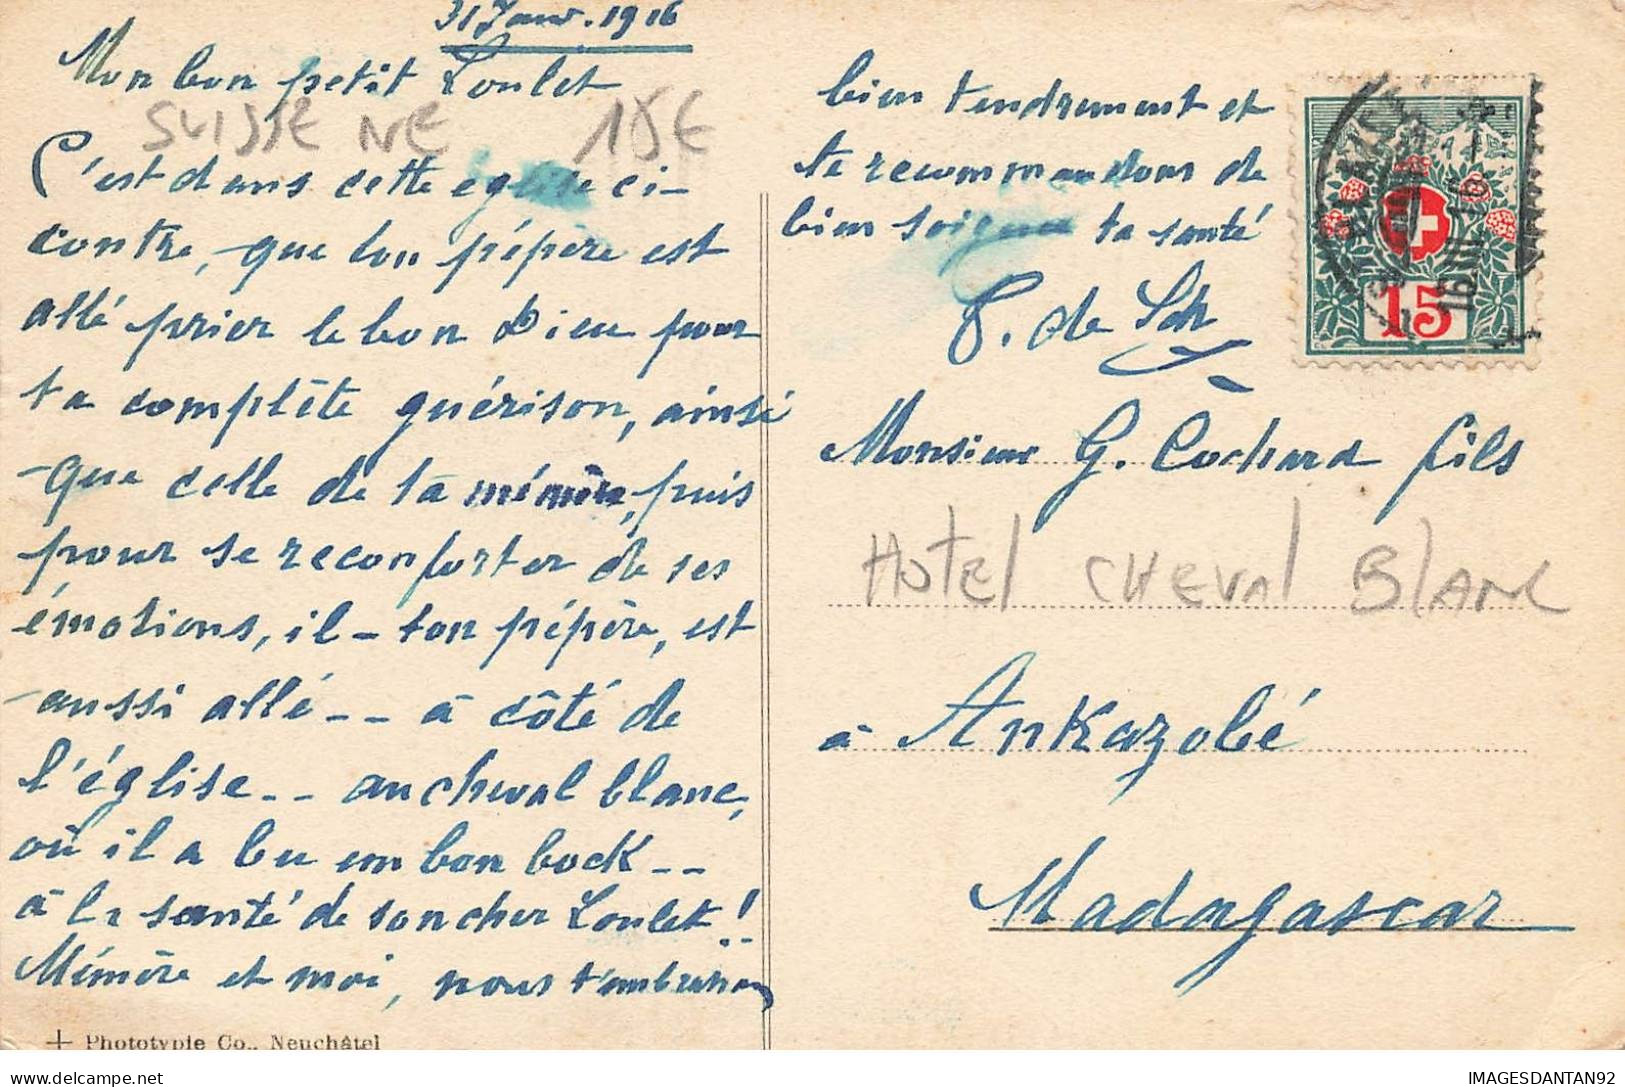 31 Janv. 1916
Mon bon petit Loulet
SUISSE NE 18€
C'est dans cette eglise ci-
contre, que ton pépère est
allé prier le bon Dieu pour
ta complète guérison, ainsi
que celle de ta mémère, puis
pour se reconforter de ses
émotions, il - ton pépère, est
aussi allé -- à côté de
l'église -- au cheval blanc,
où il a bu un bon bock --
à la santé de son cher Loulet!!
Mémère et moi, nous t'embrassons
bien tendrement et
te recommandons de
bien soigner ta santé
P. de Sch
15
Monsieur G. Cochard fils
HOTEL CHEVAL BLANC
à Ankazobé
Madagascar
Phototypie Co., Neuchâtel
IMAGESDANTAN92
delcampe.net